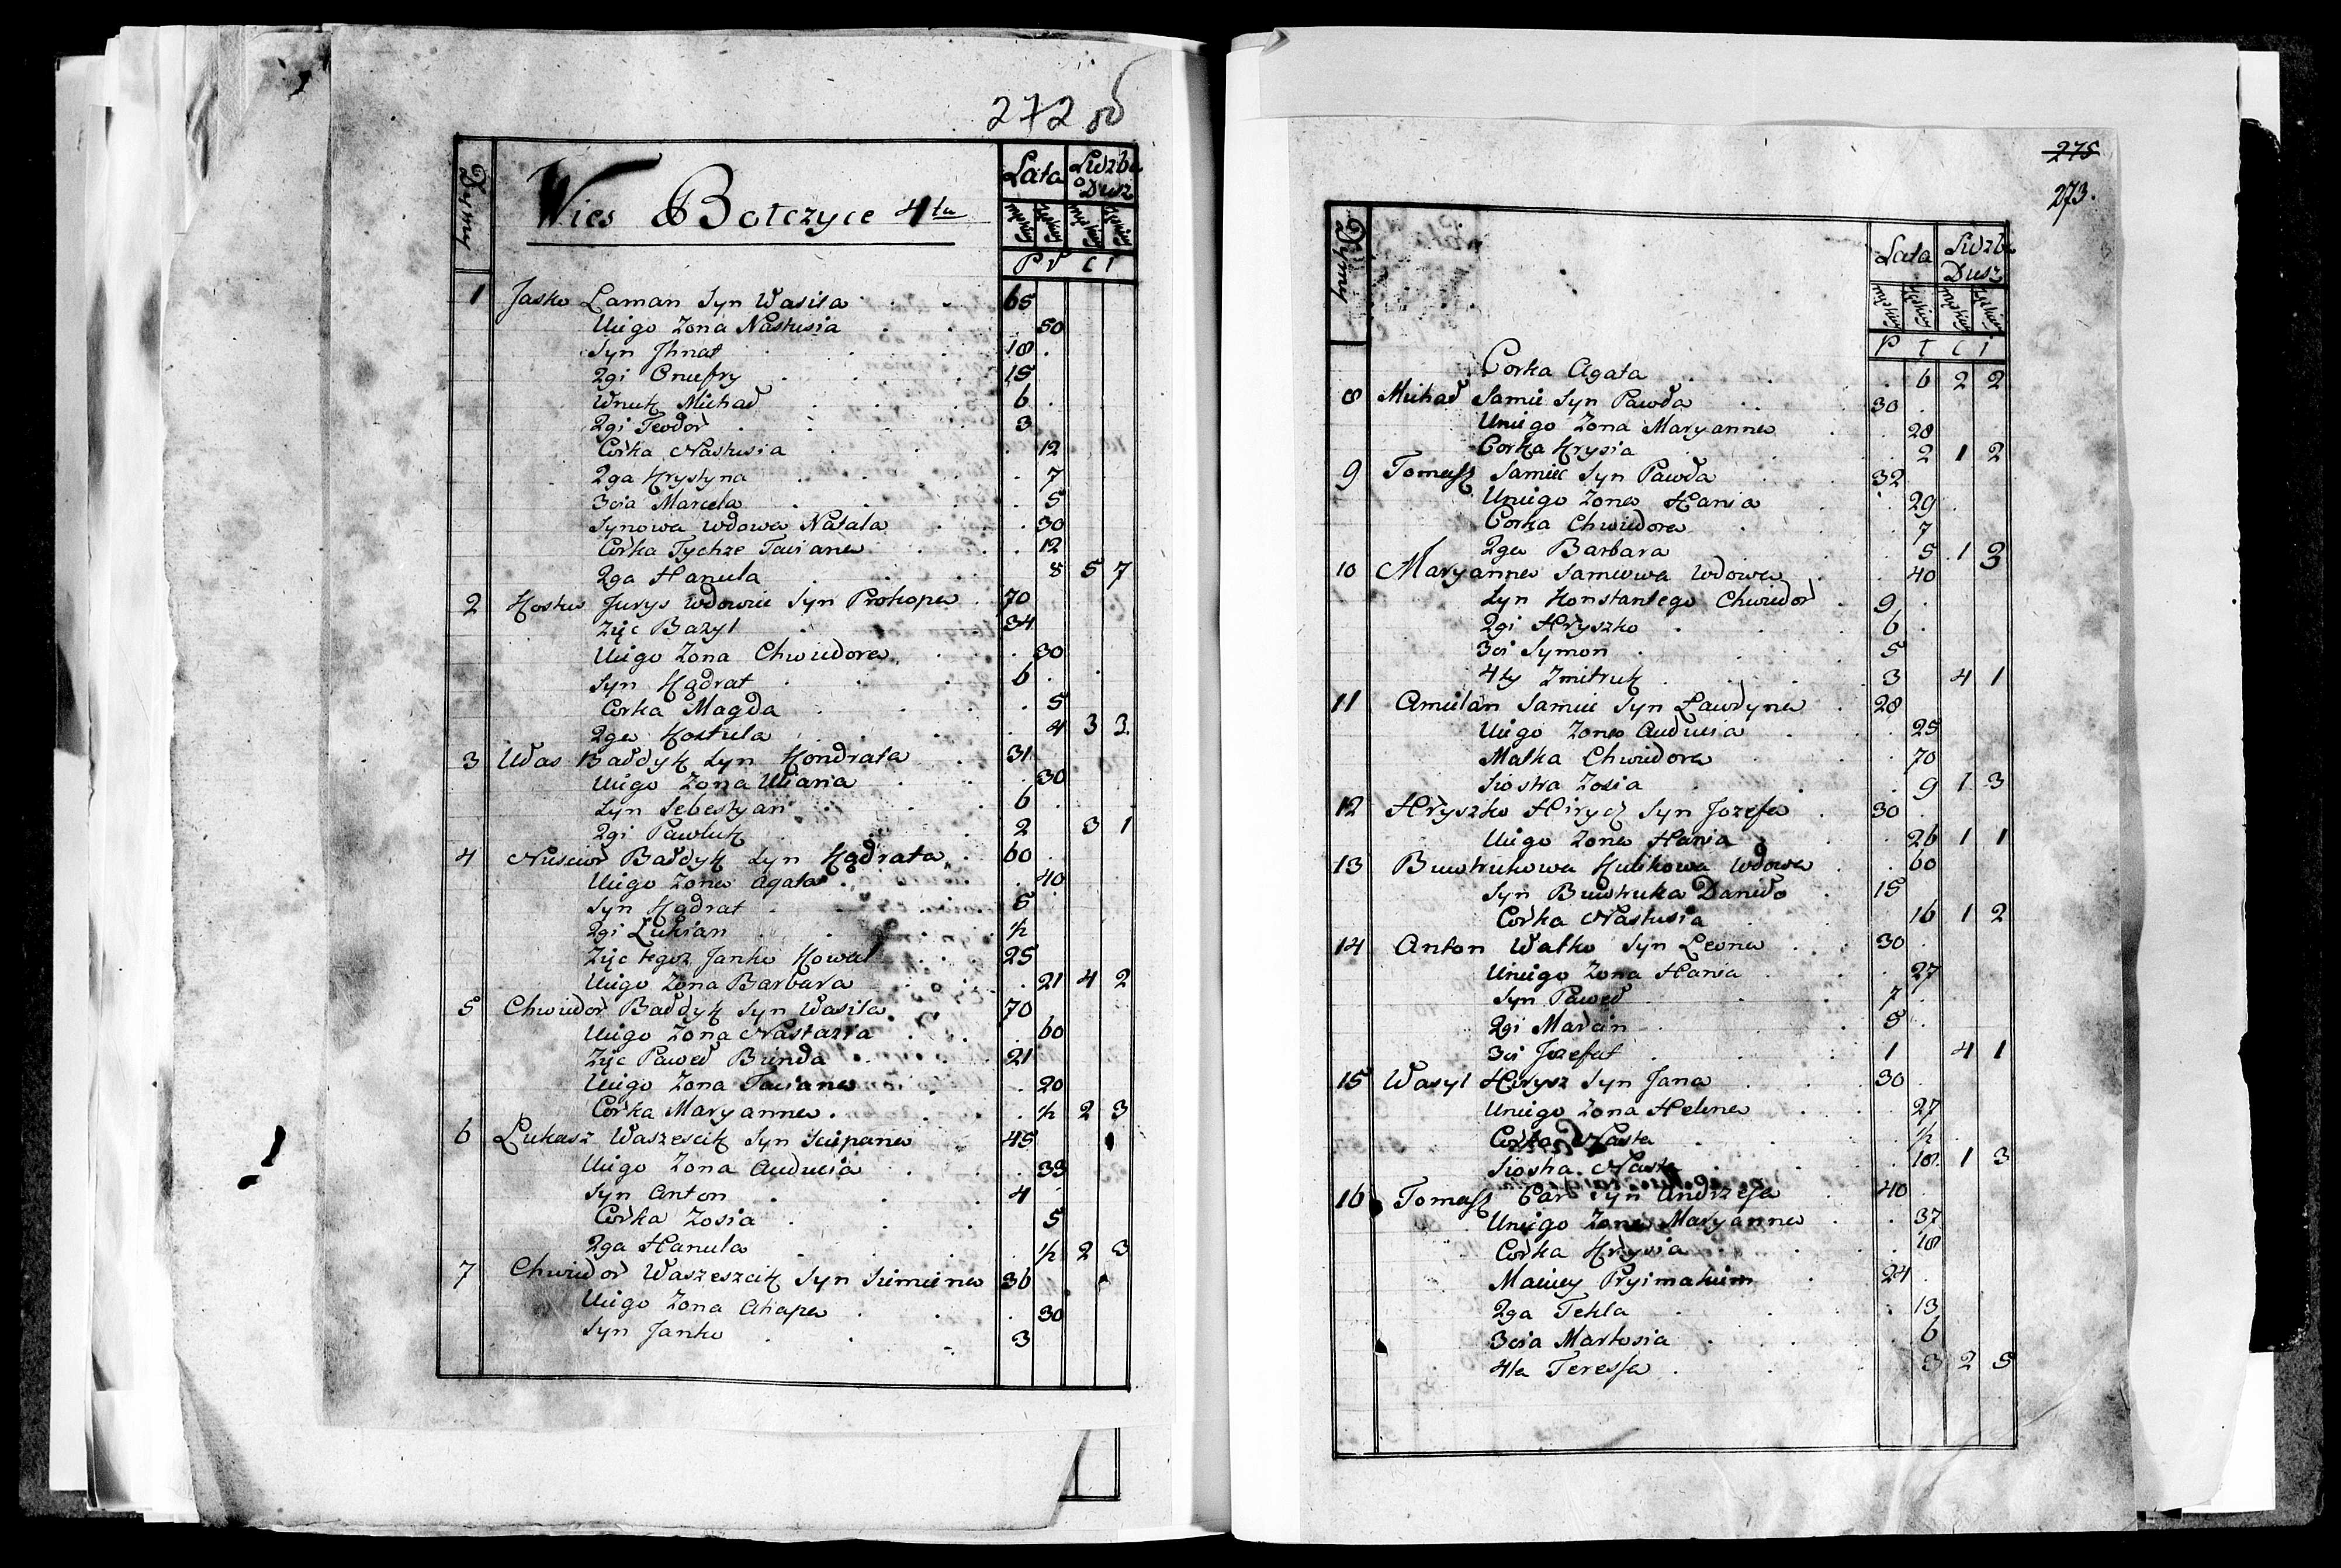 272 об
Dymy
Wies Bołczyce 4ta
Lata Liczba Dusz
męskie żeńskie męskie żeńskie
1 Jasko Łaman Syn Wasila 65
Uiego Zona Nastusia 50
Syn Jhnat 18
2gi Onufry 15
Wnuk Michał 6
2gi Teodor 3
Corka Nastusia 12
2ga Krystyna 7
3cia Marcela 5
Synowa wdowa Natala 30
Corka Tychze Taciana 12
2ga Hanula 8 5 7
2 Kostus Jurys wdowiec Syn Prokopa 70
Zięc Bazyl 34
Uiego Zona Chwiedora 30
Syn Kądrat 6
Corka Magda 5
2ga Kostula 4 3 3
3 Ułas Bałdyk Syn Kondrata 31
Uiego Zona Uliana 30
Syn Sebestyan 6
2gi Pawluk 2 3 1
4 Niescior Bałdyk Syn Kądrata 60
Uiego Zona Agata 40
Syn Kądrat 5
2gi Łukian ½
Zięc tegoz Janko Kowal 25
Uiego Zona Barbara 21 4 2
5 Chwiedor Bałdyk Syn Wasila 70
Uiego Zona Nastazia 60
Zięc Paweł Bunda 21
Uiego Zona Taciana 20
Corka Maryanna ½ 2 3
6 Łukasz Waszescik Syn Sciepana 45
Uiego Zona Auducia 39
Syn Anton 4
Corka Zosia 5
2ga Hanula ½ 2 3
7 Chwiedor Waszeszcik Syn Siemiena 36
Uiego Zona Ahapa 30
Syn Janko 3
275
273.
Dymy
Lata Liczba Dusz
męskie żeńskie męskie żeńskie
Corka Agata 6 2 2
8 Michał Samiec Syn Pawła 30
Uniego Zona Maryanna 28
Corka Krysia 2 1 2
9 Tomasz Samiec Syn Pawła 32
Uniego Zona Hania 29
Corka Chwiedora 7
2ga Barbara 5 1 3
10 Maryanna Samcowa Wdowa 40
Syn Konstantego Chwiedor 9
2gi Hryszko 6
3ci Symon 5
4ty Zmitruk 3 4 1
11 Amielan Samiec Syn Ławryna 28
Uiego Zona Auducia 25
Matka Chwiedora 70
Siostra Zosia 9 1 3
12 Hryszko Hirycz Syn Jozefa 30
Uiego Zona Hania 26 1 1
13 Kulikowa Wdowa 60
Syn Daniło 15
Corka Nastusia 16 1 2
14 Anton Wałko Syn Leona 30
Uniego Zona Hania 27
Syn Paweł 7
2gi Marcin 5
3ci Jozefat 1 4 1
15 Wasyl Hirysz Syn Jana 30
Uniego Zona Helena 27
Corka Nasta ½
Siostra Nasta 18 1 3
16 Tomasz Car Syn Andrzeja 40
Uniego Zona Maryanna 37
Corka Krysia 18
Maciey Pryimakiem 24
2ga Tekla 13
3cia Martosia 6
4ta Teressa 3 2 5